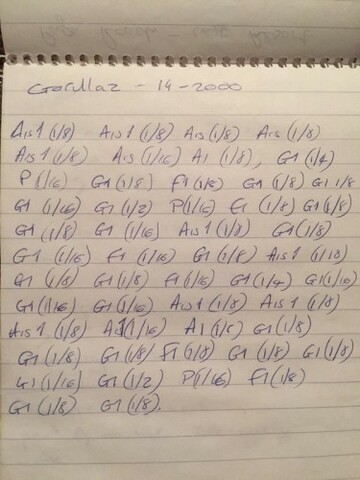 Gorillaz - 19-2000
Ais1 (1/8) Ais1 (1/8) Ais (1/8) Ais (1/8)
Ais1 (1/8) Ais (1/16) A1 (1/8), G1 (1/4)
P (1/16) G1 (1/8) F1 (1/8) G1 (1/8) G1 1/8
G1 (1/16) G1 (1/2) P(1/16) F1 (1/8) G1(1/8)
G1 (1/8) G1 (1/16) Ais1 (1/8) G1(1/8)
G1 (1/16) F1 (1/16) G1 (1/8) Ais1 (1/16)
G1 (1/8) G1(1/8) F1(1/16) G1(1/4) G1(1/16)
G1(1/16) G1(1/16) Ais1 (1/8) Ais1 (1/8)
Ais1 (1/8) (1/16) A1(1/8) G1(1/8)
G1(1/8) G1(1/8) F1(1/8) G1(1/8) G1(1/8)
G1(1/16) G1(1/2) P(1/16) F1(1/8)
G1(1/8) G1(1/8).